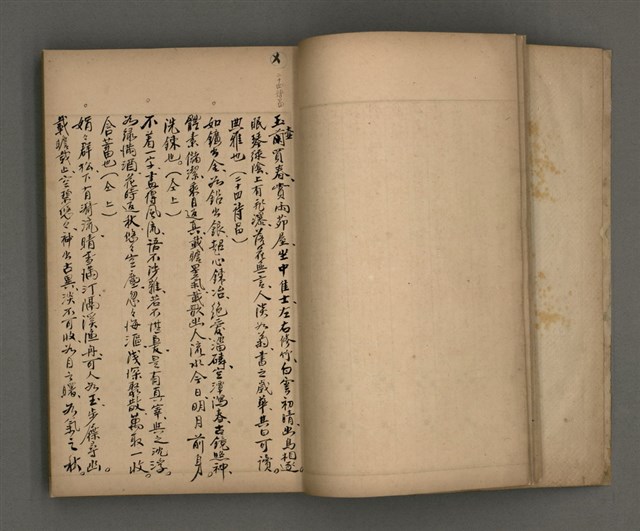 玉壺買春賞雨茆屋坐中佳士左右修竹白雲初晴幽鳥相逐
眠琴綠陰上有飛瀑落花無言人淡如菊書之歲華其曰可讀
典雅也(二十四詩品)
如鑛出金如鉛出銀超心鍊冶絕愛淄磷空潭瀉春古鏡照神
體素儲潔乘月返真載瞻星氣載歌幽人流水今日明月前身
洗鍊也(仝上)
不著一字盡得風流語不涉難若不堪憂是有真宰與之沈浮
如綠滿酒花時返秋悠々空塵忽々海漚淺深聚散萬取一收
含蓄也(仝上)
娟々群松下有漪流晴雪滿汀隔溪漁舟可人如玉步屧尋幽
載瞻載止空碧悠々神出古異淡不可收如月之曙如氣之秋